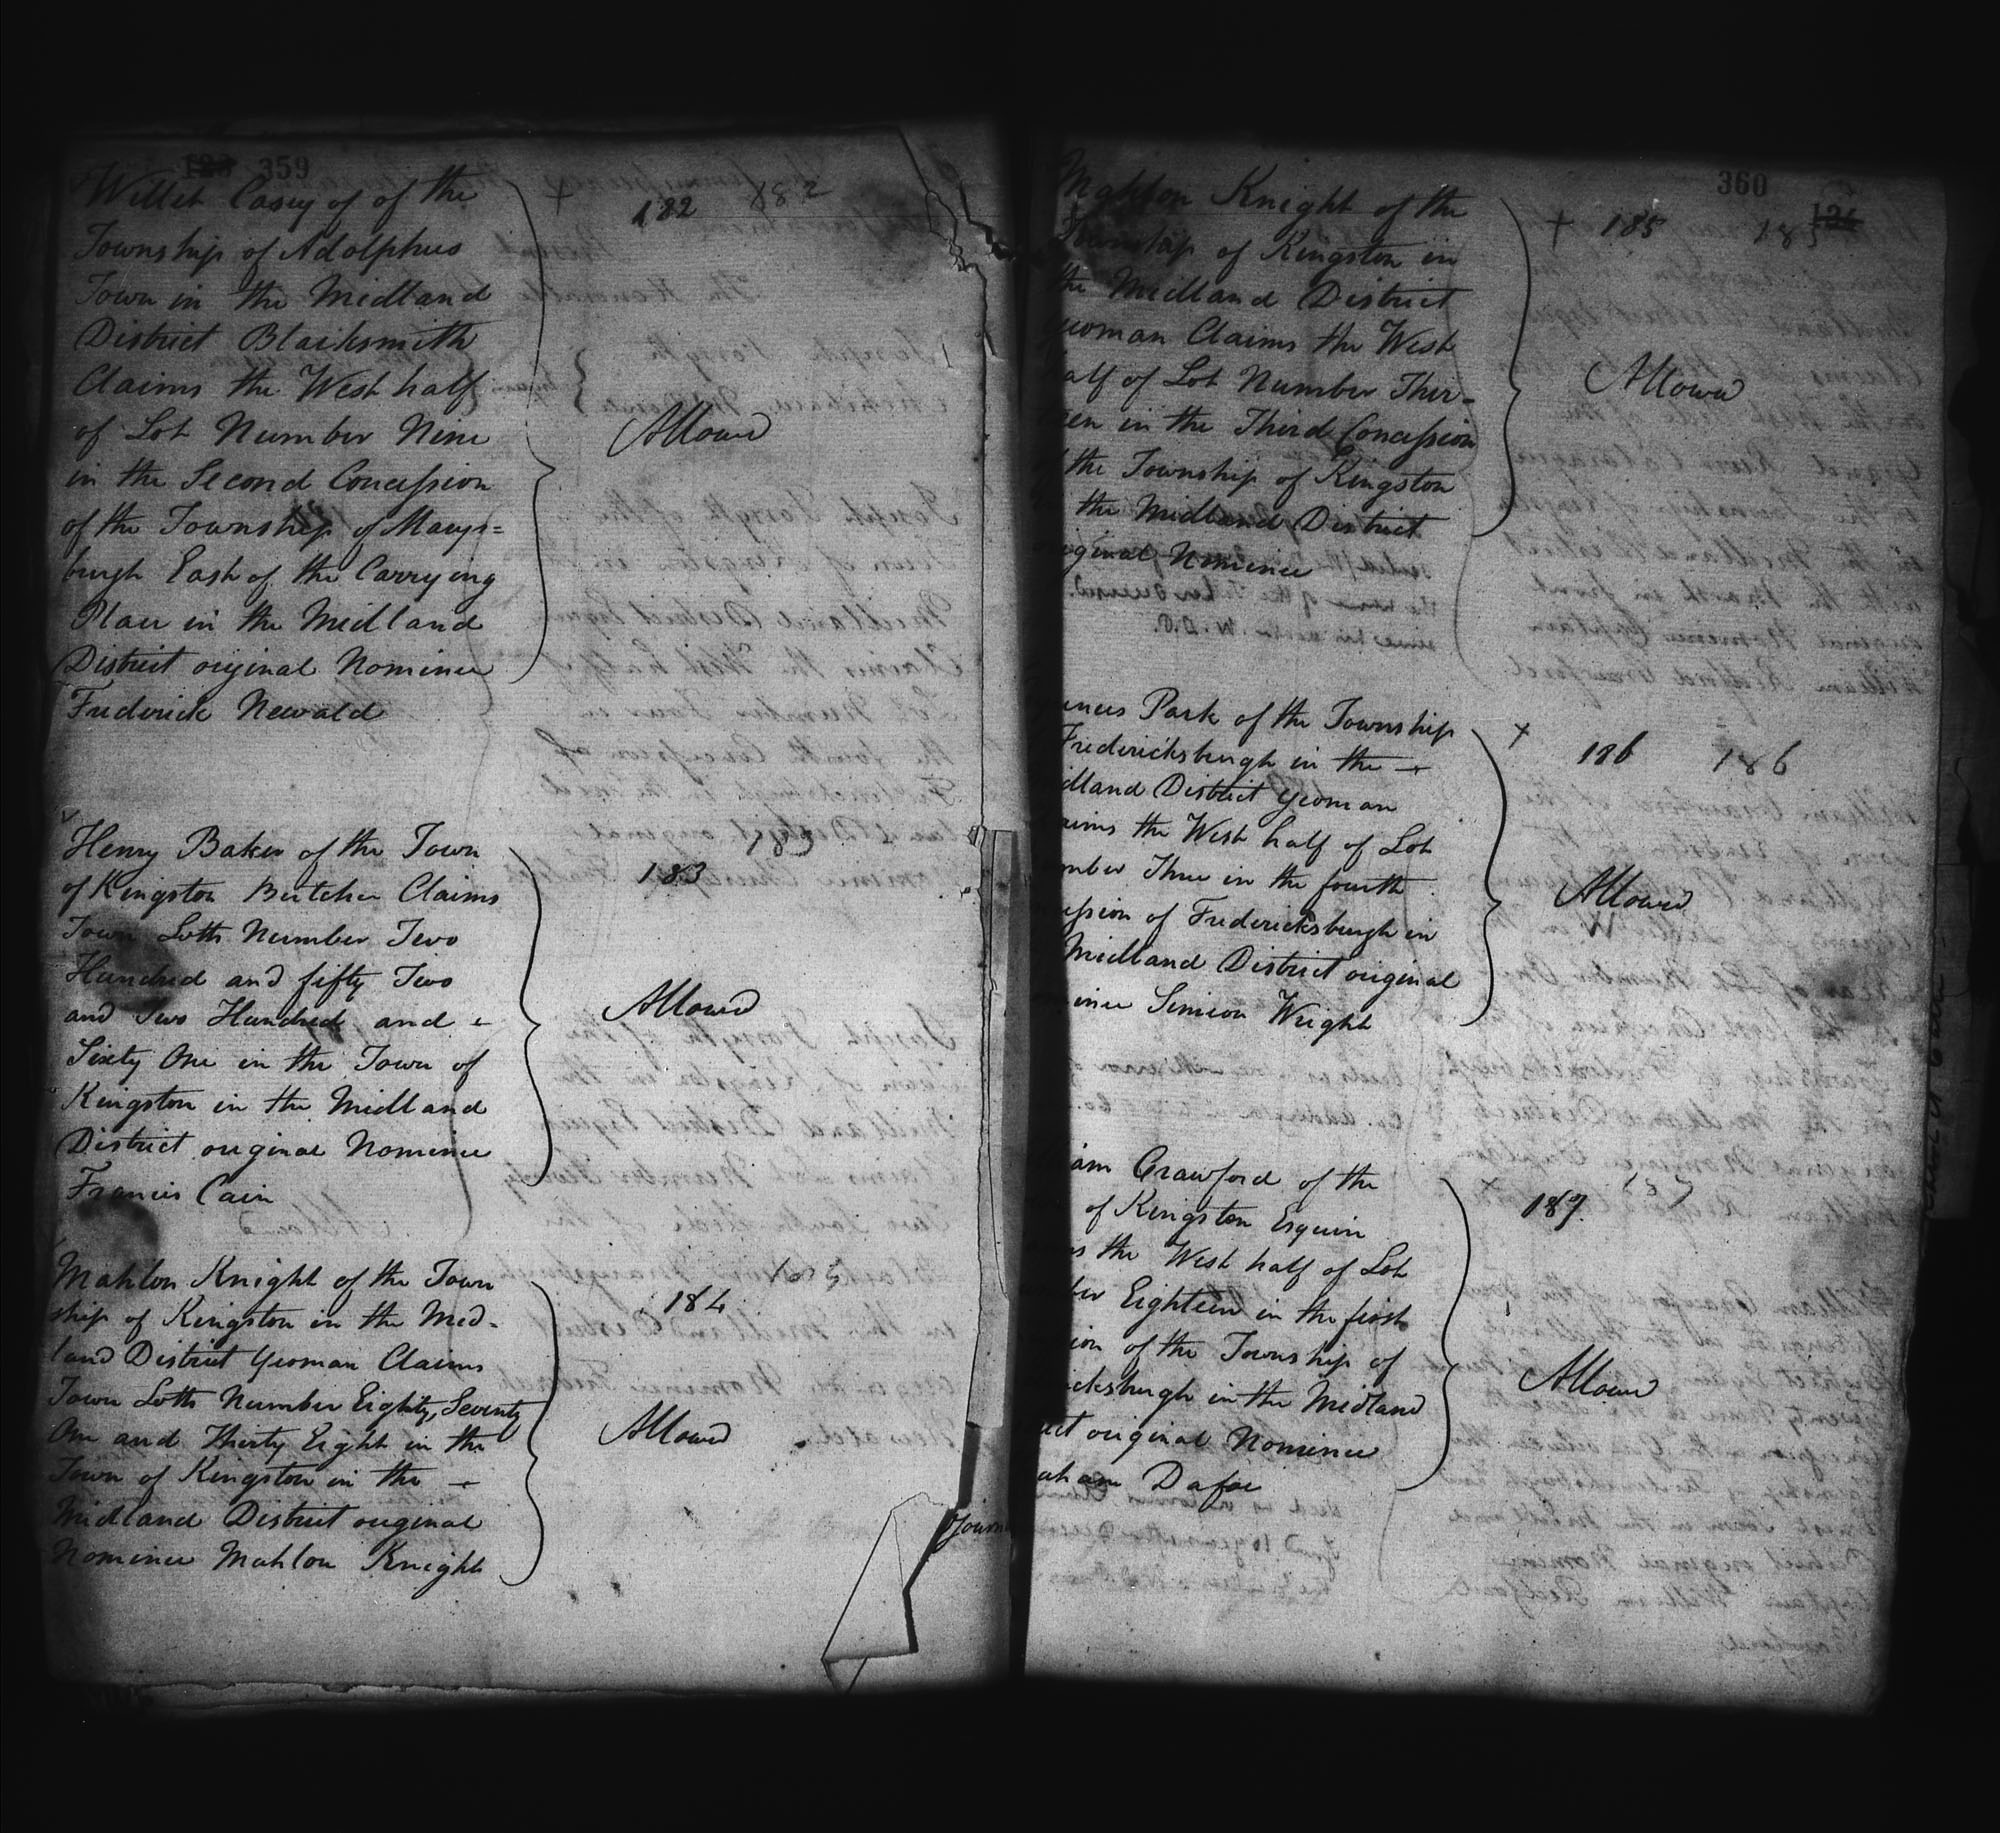 359
Willet Casey of of the
Township of Adolphus
Town in the Midland
District Blacksmith
Claims the West half
of Lot Number Nine
in the Second Concession
of the Township of Marys=
burgh East of the Carrying
Place in the Midland
District original Nominee
Frederick Newald
182
182
Allowed
Henry Baker of the Town
of Kingston Butcher Claims
Town Lotts Number Two
Hundred and fifty Two
and Two Hundred and
Sixty One in the Town of
Kingston in the Midland
District original Nominee
Francis Cain
183
183
Allowed
Mahlon Knight of the Town
ship of Kingston in the Mid-
land District Yeoman Claims
Town Lotts Number Eighty, Seventy
One and Thirty Eight in the
Town of Kingston in the
Midland District original
Nominee Mahlon Knight
184
Allowed
360
Mahlon Knight of the
Township of Kingston in
the Midland District
Yeoman Claims the West
half of Lot Number Thir=
teen in the Third Concession
of the Township of Kingston
the Midland District
original Nominee
+ 185
185
Allowed
Park of the Township
Fredericksburgh in the
dland District Yeoman
aims the West half of Lot
mber Three in the fourth
ession of Fredericksburgh in
Midland District original
inee Simeon Wright
+
186
186
Allowed
iam Crawford of the
of Kingston Esquire
s the West half of Lot
ber Eighteen in the first
ion of the Township of
icksburgh in the Midland
ict original Nominee
Dafoe
187
187
Allowed